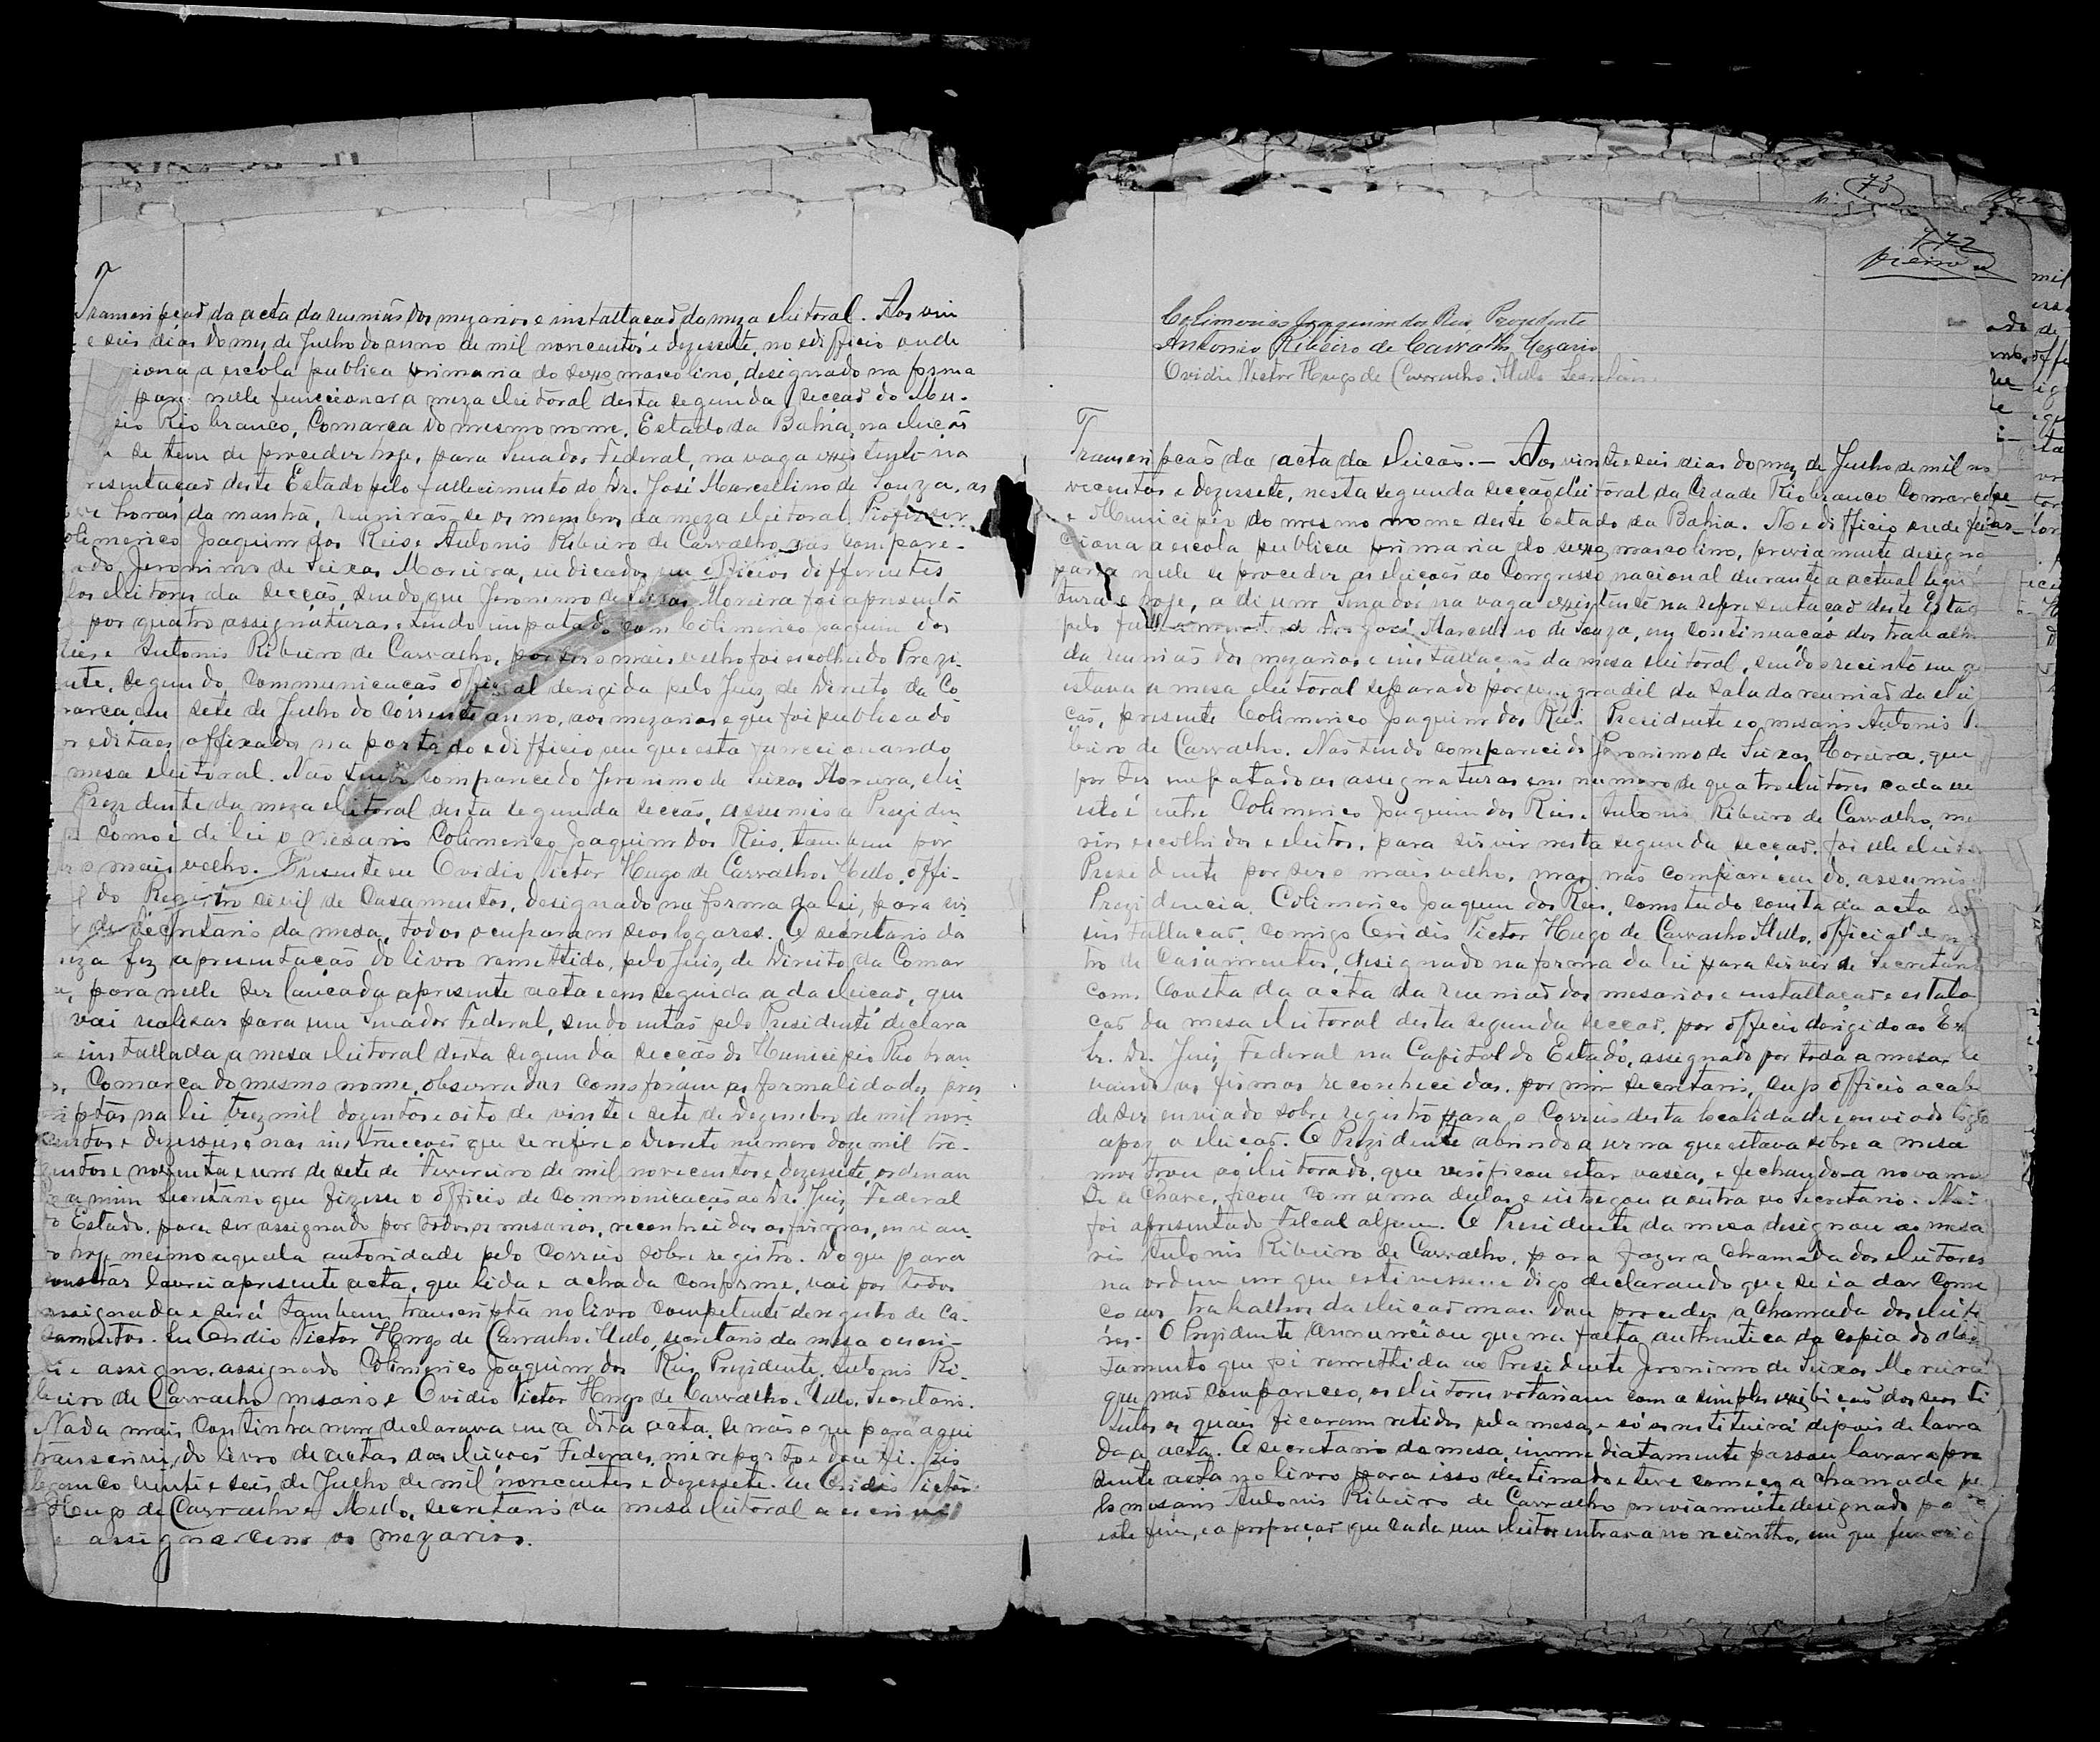 Transcripçaõ da acta da reuniaõ dos mezarios e installaçaõ da meza eleitoral. Aos vin
e seis dias do mez de Julho do anno de mil novecentos e dezessete, no edifficio onde
ciona a escóla publica primaria do sexo mascolino, designado na forma
para nelle funccionar a meza eleitoral desta segunda secçaõ do Mu-
pio Rio branco, Comarca do mesmo nome, Estado da Bahia, na eleiçaõ
se tem de proceder hoje, para Senador Federal, na vaga existente na
resentaçaõ deste Estado pelo fallecimento do Dr. José Marcellino de Souza, as
ove horas da manhã, reuniraõ-se os membros da meza eleitoral Professor
olimerico Joaquim dos Reis e Antonio Ribeiro de Carvalho, naõ compare-
do Jeronimo de Seixas Moreira, indicados em officios differentes
los eleitores da secçaõ, sendo que Jeronimo de Seixas Moreira foi apresentá
por quatro assignaturas e tendo impatado com Colimerico Joaquim dos
Reis e Antonio Ribeiro de Carvalho, por ser o mais velho foi escolhido Prezi-
nte, segundo communicaçaõ official derigida pelo Juiz de Direito da Co
marca, em sete de Julho do corrente anno, aos mezarios e que foi publicado
r editaes affixados na porta do edifficio em que está funccionando
mesa eleitoral. Não tendo comparecido Jeronimo de Seixas Moreira, elei-
Prezidente da meza eleitoral desta segunda secçaõ, assumio a Preziden
como é de lei o mesario Colimerico Joaquim dos Reis, tambem por
o mais velho. Presente eu Ovidio Victor Hugo de Carvalho e Mello, offi-
l do Registro civil de Casamentos, designado na forma da lei, para ser-
de Secretario da mesa, todos ocuparam seos logares. O secretario da
eza fez apresentaçaõ do livro remettido, pelo Juiz de Direito da Comar
, para nelle ser lançada apresente acta e em seguida a da eleiçaõ, que
vai realisar para um Senador Federal, sendo entaõ pelo Presidente declara
installada a mesa eleitoral desta segunda secçaõ do Municipio Rio bran
Comarca do mesmo nome, observadas como foram as formalidades pres
riptas na lei trez mil dozentos e oito de vinte e sete de dezembro de mil nove
centos e dezesseis e nas instrucções que se refere o Decreto numero doze mil tre-
zentos e noventa e um de sete de Fevereiro de mil novecentos e dezessete, ordenan
a mim secretario que fizesse o officio de commonicaçaõ ao Dr. Juiz Federal
o Estado, para ser assignado por todos os mesarios, reconhecidas as firmas, envian
o hoje mesmo aquela autoridade pelo correio sobre registro. Do que para
constar lavrei apresente acta, que lida e achada conforme, vai por todos
assignada e será tambem transcripta no livro competente de registro de Ca-
samentos. Eu Ovidio Victor Hugo de Carvalho e Mello, secretario da mesa o escri-
vi e assigno. assignado Colimerico Joaquim dos Reis, Prezidente, Antonio Ri-
beiro de Carvalho mesario e Ovidio Victor Hugo de Carvalho e Mello, Secretario.
Nada mais continha nem declarava em a dita acta. Se naõ o que para aqui
transcrevi, do livro de actas das eleições Federaes, me reporto e dou fé. Rio
branco vinte e seis de Julho de mil novecentos e dezessete. eu Ovidio Victor
Hugo de Carvalho e Mello, secretario da mesa eleitoral a escrevi
e assigna com os mezarios.
73
772
Colimerico Joaquim dos Reis, Prezidente
Antonio Ribeiro de Carvalho Mezario
Ovidio Victor Hugo de Carvalho e Mello Secretario
Transcripcaõ da acta da eleicaõ.— Aos vinte e seis dias do mez de Julho de mil no
vecentos e dezessete, nesta segunda secçaõ eleitoral da Cidade Rio branco Comarca
e Municipio do mesmo nome deste Estado da Bahia. No edifficio onde
ciona a escola publica primaria do sexo mascolino, previamente designa
para nelle se proceder as eleições ao Congresso nacional durante a actual legis
tura e hoje, a de um Senador na vaga existente na representaçaõ deste Estad
pelo José Marcellino de Souza, em continuaçaõ dos trabalh
da reuniaõ dos mezarios e installaçaõ da mesa eleitoral, sendo o recinto em q
estava a mesa eleitoral separado por um gradil da sala da reuniaõ da elei
caõ, presente Colimerico Joaquim dos Reis Presidente e o mesario Antonio Ri
beiro de Carvalho. Naõ tendo comparecido Jeronimo de Seixas Moreira, que
por ter impatado as assignaturas em numero de quatro eleitores cada um
isto é entre Colimerico Joaquim dos Reis e Antonio Ribeiro de Carvalho, me
rios escolhidos e eleitos, para servir nesta segunda secçaõ, foi elle eleito
Presidente por ser o mais velho, mas naõ comparecendo, assumio
Prezidencia Colimerico Joaquim dos Reis, como tudo consta da acta da
installaçaõ, comigo Ovidio Victor Hugo de Carvalho e Mello, official
tro de Casamentos, designado na forma da lei para servir de Secretario
como consta da acta da reuniaõ dos mesarios e installaçaõ
caõ da mesa eleitoral desta segunda secçaõ, por officio derigido ao Ex
Sr. Dr. Juiz Federal na Capital do Estado, assignado por toda a mesa, le
vando as firmas reconhecidas, por mim secretario, cujo officio acab
de ser enviado sobre registro para o Correio desta localidade
apos a eleiçaõ. O Prezidente abrindo a urna que estava sobre a mesa
mostrou ao eleitorado, que verificou estar vasia, e fechando-a novame
chave, ficou com uma dellas e entregou a outra ao secretario. Naõ
foi apresentado Fiscal algum. O Presidente da mesa designou ao mesa
rio Antonio Ribeiro de Carvalho, para fazer a chamada dos eleitores
na ordem em que estivessem digo declarando que se ia dar come
ço aos trabalhos da eleiçaõ mandou proceder a chamada dos eleito
res. O Prezidente annunciou que na falta authentica da copia do alis
tamento que foi remettida ao Presidente Jeronimo de Seixas Moreira
que naõ compareceo, os eleitores votariam com a simples exibiçaõ dos seos ti
tulos os quais ficaram retidos pela mesa, e só os restituirá depois de lavra
da a acta. O secretario da mesa, immediatamente passou lavrar a pre
sente acta no livro para isso destinado e teve começo a chamada pe
lo mesario Antonio Ribeiro de Carvalho previamente designado pa
este fim, e a proporçaõ que cada um eleitor entrava no recintho, em que funccio